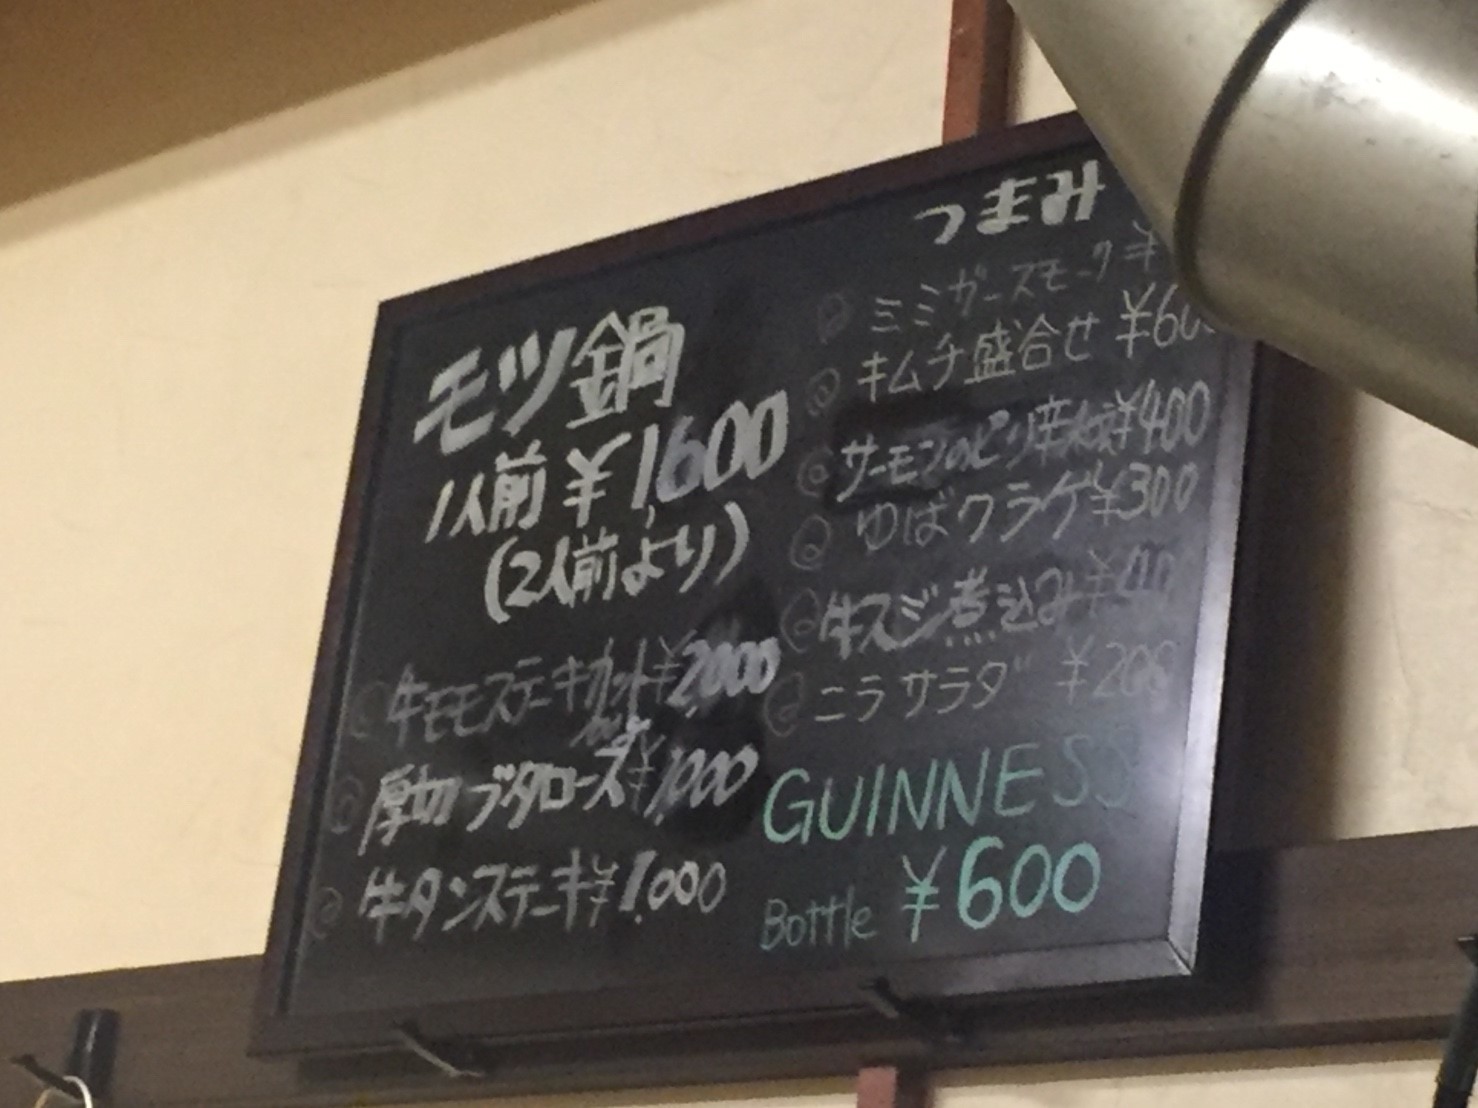 モツ鍋
1人前 ¥1,600
(2人前より)
牛モモステーキカット ¥2,000
厚切ブタロース ¥1,000
牛タンステーキ ¥1,000
つまみ
ミミガースモーク ¥
キムチ盛合せ ¥60
サーモンのピリ辛 ¥400
ゆばクラゲ ¥300
牛スジ煮込み ¥40
ニラサラダ ¥200
GUINNESS
Bottle ¥600